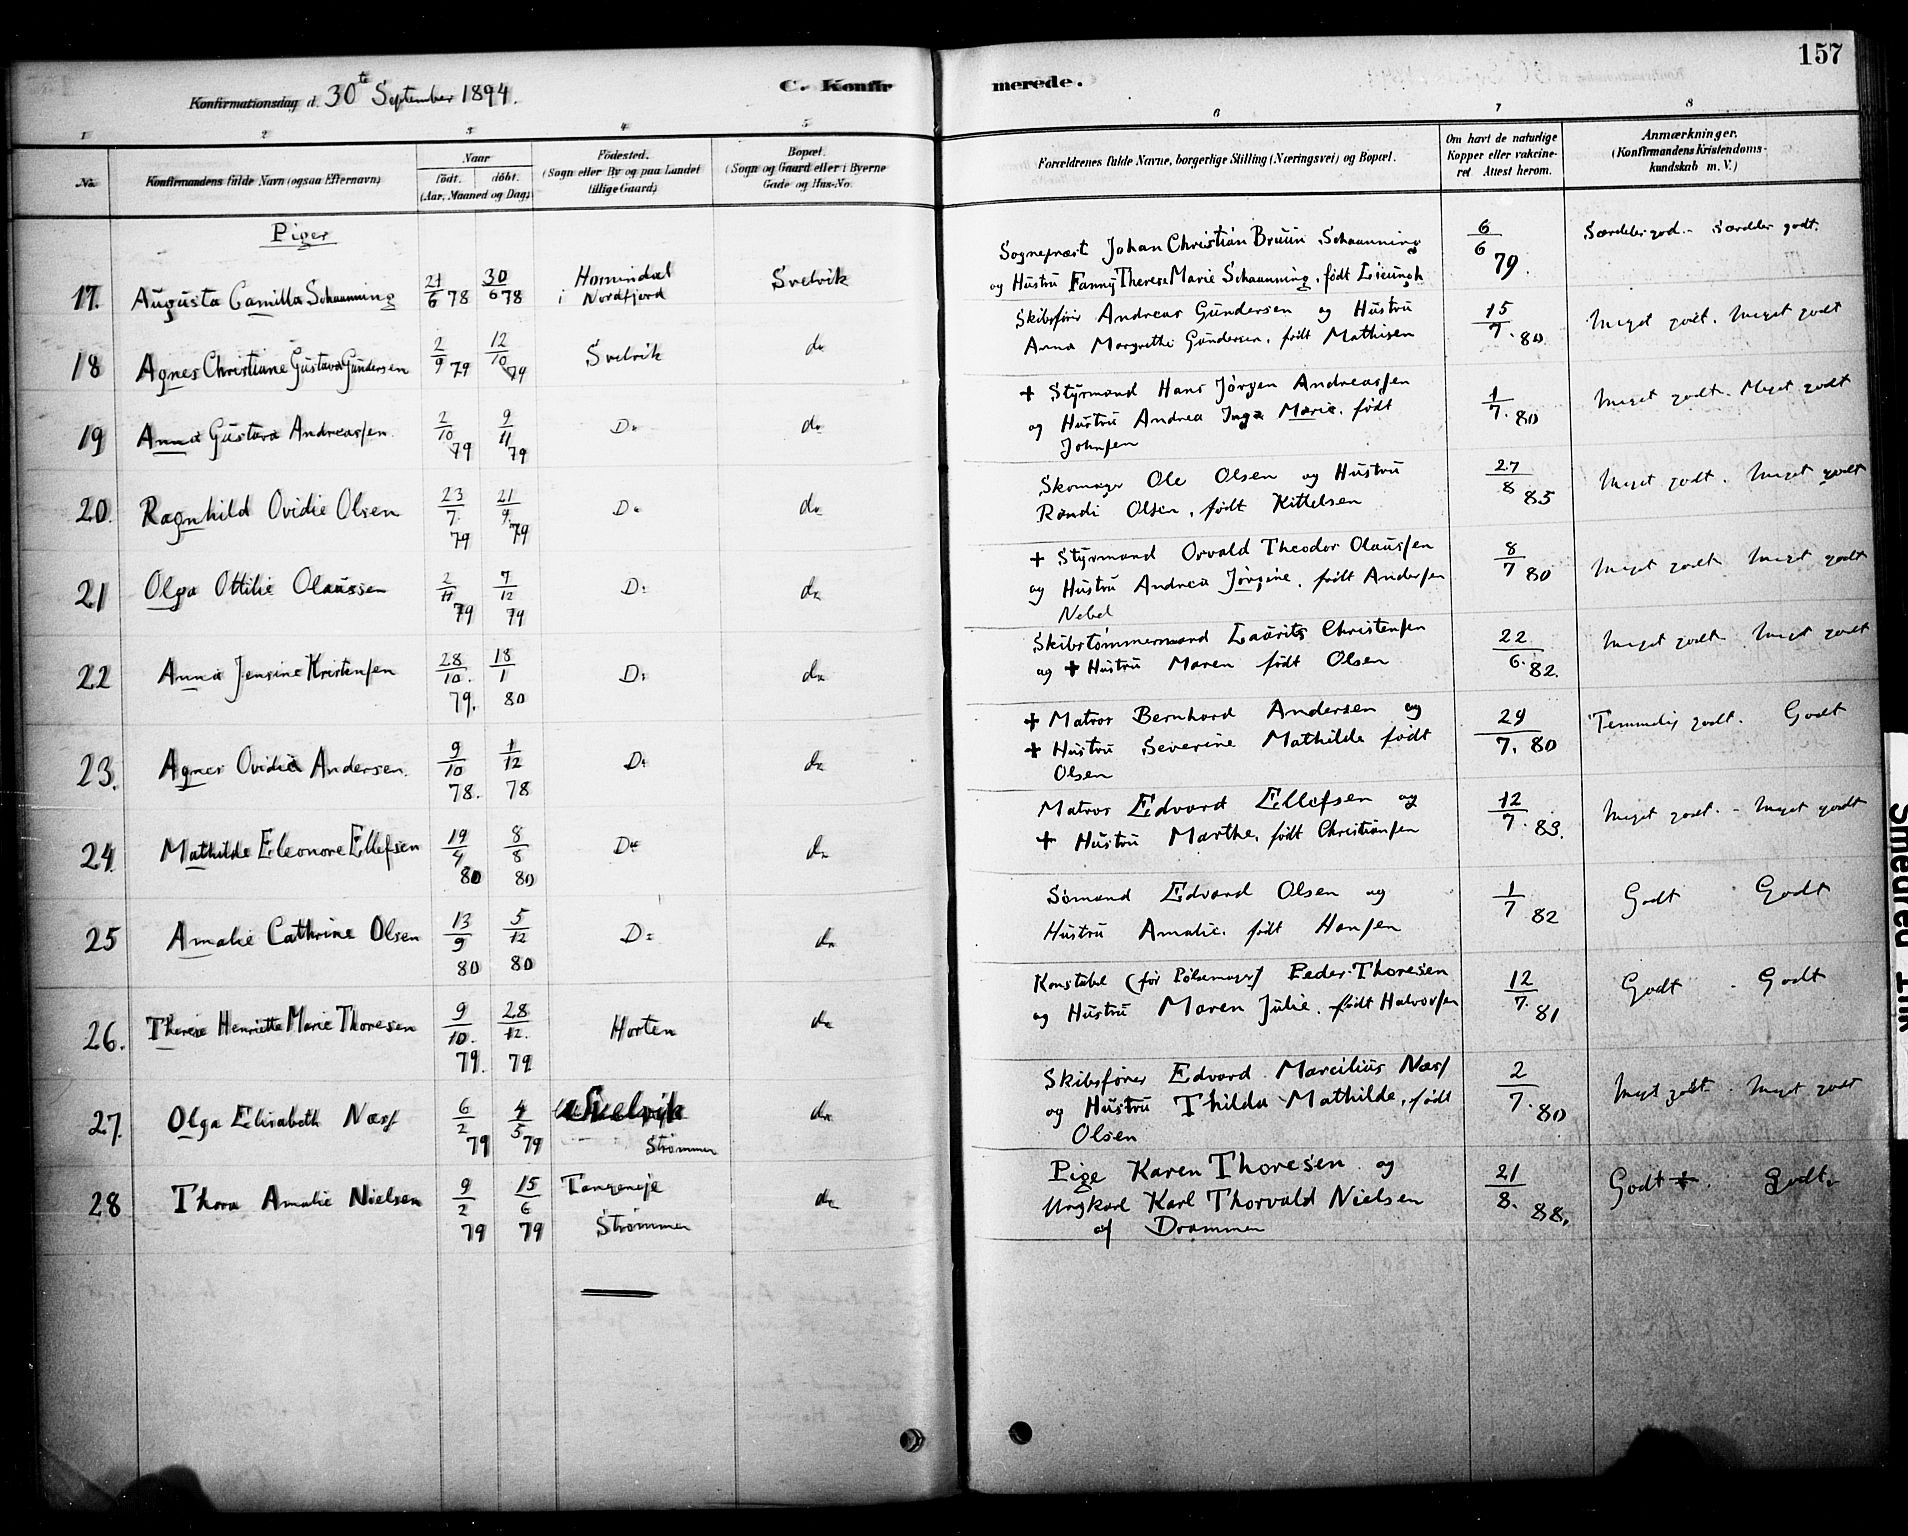 157
Konfirmationsdag d. 30te September 1894.
C. Konfirmerede.
1 2 3 4 5 6 7 8
No. Konfirmandens fulde Navn (ogsaa Efternavn) Naar født. døbt. (Aar, Maaned og Dag) Fødested. (Sogn eller By og paa Landet tillige Gaard) Bopæl. (Sogn og Gaard eller i Byerne Gade og Hus-No. Forældrenes fulde Navne, borgerlige Stilling (Næringsvei) og Bopæl. Om havt de naturlige Kopper eller vakcineret Attest herom. Anmærkninger. (Konfirmandens Kristendomskundskab m. V.)
Piger
17. Augusta Camilla Schaanning 21/6 78 30/6 78 Hornindal i Nordfjord Svelvik Sognepræst Johan Christian Bruun Schaanning og Hustru Fanny Therese Marie Schaanning, født 6/6 79. Særdeles god. - Særdeles godt.
18 Agnes Christiane Gustava Gundersen 2/9 79 12/10 79 Svelvik do Skibsfører Andreas Gundersen og Hustru Anna Margrethe Gundersen, født Mathisen 15/7. 80 Meget godt. Meget godt
19 Anna Gustava Andreassen 2/10 79 9/11 79 Do do + Styrmand Hans Jørgen Andreassen og Hustru Andrea Inga Marie, født Johnsen 1/7. 80 Meget godt. Meget godt
20. Ragnhild Ovidie Olsen 23/7. 79 21/9. 79 Do do Skomager Ole Olsen og Hustru Randi Olsen, født Kittelsen 27/8 85 Meget godt. Meget godt
21 Olga Ottilie Olaussen 2/11 79 7/12 79 Do do + Styrmand Osvald Theodor Olaussen og Hustru Andrea Jørgine, født Andersen Nebel 8/7 80 Meget godt Meget godt
22 Anna Jensine Kristensen 28/10. 79. 18/1 80 Do do Skibstømmermand Laurits Christensen og + Hustru Maren født Olsen 22/6. 82. Meget godt Meget godt
23. Agnes Ovidia Andersen. 9/10 78. 1/12 78 Do do + Matros Bernhard Andersen og + Hustru Severine Mathilde født Olsen 29/7. 80 Temmelig godt. Godt
24. Mathilde Eleonore Ellefsen 19/4 80 8/8 80 Do do Matros Edvard Ellefsen og + Hustru Marthe, født Christiansen 12/7. 83. Meget godt. - Meget godt
25 Amalie Cathrine Olsen 13/9 80 5/12 80 Do do Sømand Edvard Olsen og Hustru Amalie, født Hansen 1/7 82 Godt Godt
26. Therese Henriette Marie Thoresen 9/10. 79. 28/12. 79 Horten do Konstabel (før Pølsemager) Peder Thoresen og Hustru Maren Julie, født Halvorsen 12/7. 81 Godt - Godt
27. Olga Elisabeth Næss 6/2 79 4/5 79 Svelvik Strømmen do Skibsfører Edvard Marcilius Næss og Hustru Thilda Mathilde, født Olsen 2/7. 80 Meget godt. Meget godt
28 Thora Amalie Nielsen 9/2 79 15/6 79 Tangeneje Strømmen do Pige Karen Thoresen og Ungkarl Karl Thorvald Nielsen af Drammen 21/8. 88. Godt +. Godt.
Smedrud